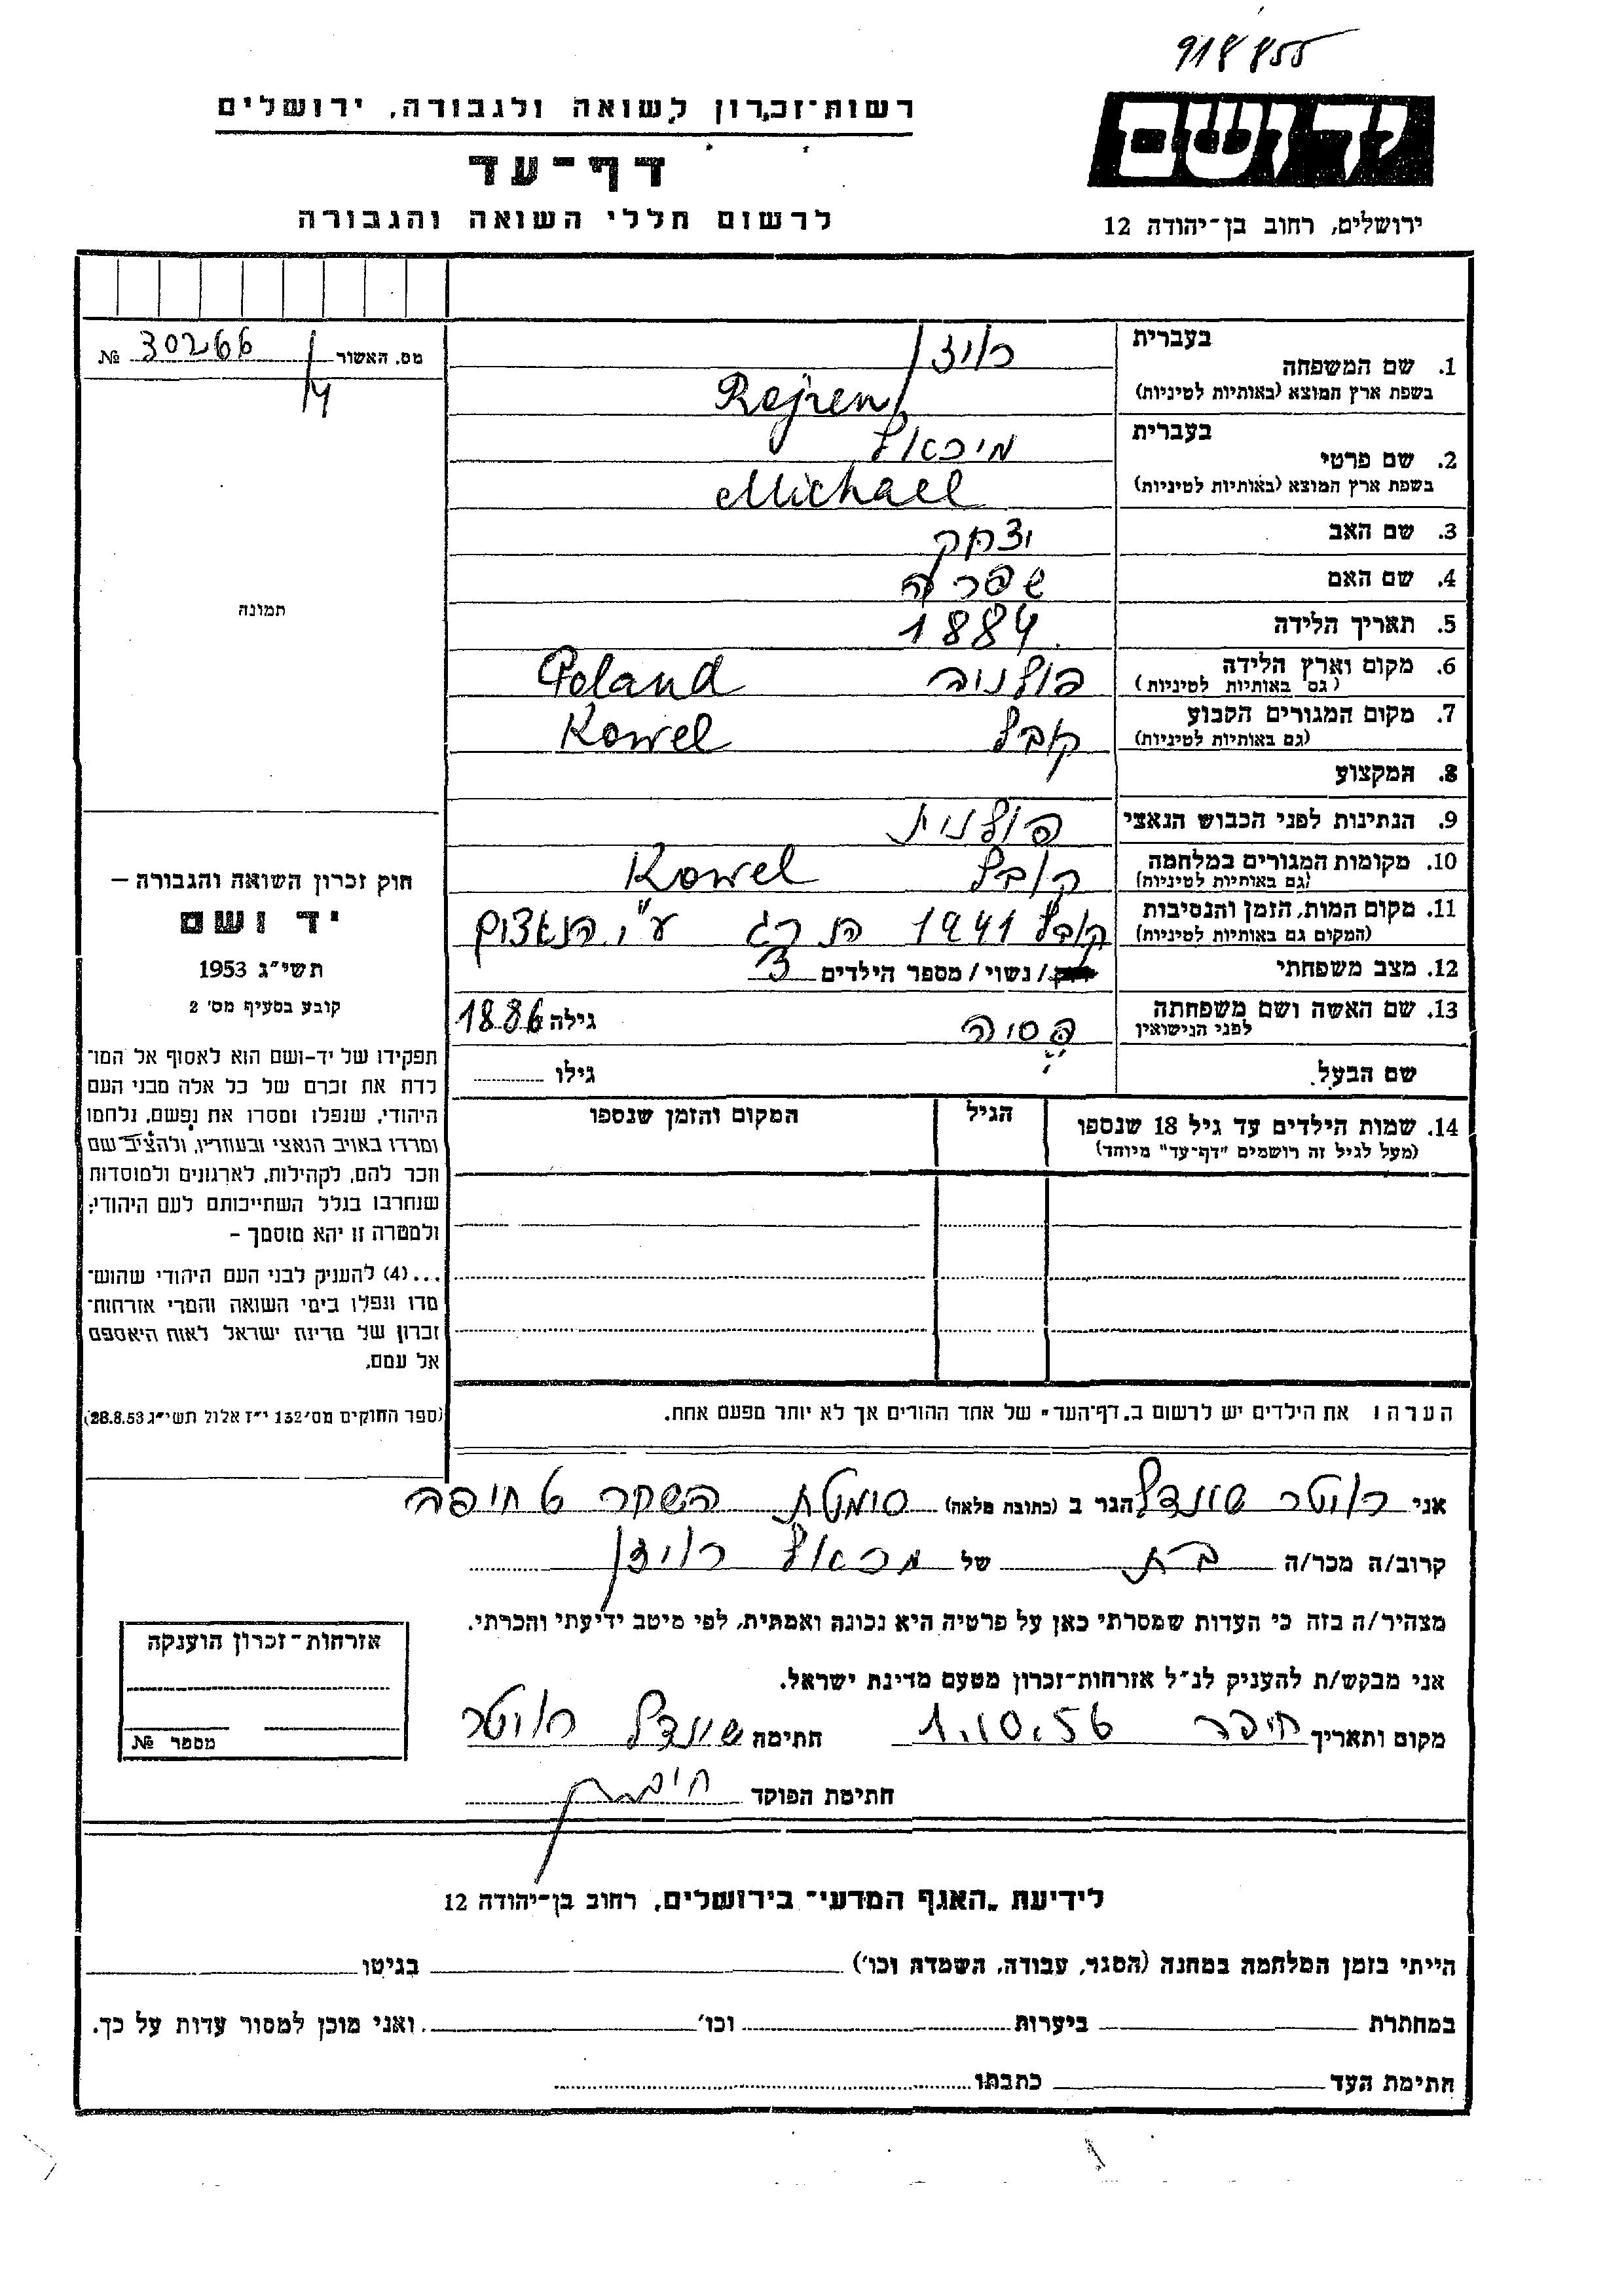 918855
רשות־זכרון לשואה ולגבורה, ירושלים
דף־עד
לרשום חללי השואה והגבורה
יד ושם
ירושלים, רחוב בן־יהודה 12
מס. האשור 30266 №
1. שם המשפחה
בעברית רויזן
בשפת ארץ המוצא (באותיות לטיניות) Rojzen
2. שם פרטי
בעברית מיכאל
בשפת ארץ המוצא (באותיות לטיניות) Michael
3. שם האב יצחק
4. שם האם שפרה
5. תאריך הלידה 1884
6. מקום וארץ הלידה פולניה Poland
(גם באותיות לטיניות)
7. מקום המגורים הקבוע קובל Kowel
(גם באותיות לטיניות)
8. המקצוע
9. הנתינות לפני הכבוש הנאצי פולנית
10. מקומות המגורים במלחמה קובל Kowel
(גם באותיות לטיניות)
11. מקום המות, הזמן והנסיבות קובל 1941 הרג ע"י הנאצים
(המקום גם באותיות לטיניות)
12. מצב משפחתי / נשוי / מספר הילדים 3
13. שם האשה ושם משפחתה הסיה גילה 1886
לפני הנישואין
שם הבעל. גילו
14. שמות הילדים עד גיל 18 שנספו הגיל המקום והזמן שנספו
(מעל לגיל זה רושמים "דף־עד" מיוחד)
הערה: את הילדים יש לרשום ב"דף־העד" של אחד ההורים אך לא יותר מפעם אחת.
תמונה
חוק זכרון השואה והגבורה –
יד ושם
תשי״ג 1953
קובע בסעיף מס׳ 2
תפקידו של יד־ושם הוא לאסוף אל המו־
לדת את זכרם של כל אלה מבני העם
היהודי, שנפלו ומסרו את נפשם, נלחמו
ומרדו באויב הנאצי ובעוזריו, ולהציב שם
וזכר להם, לקהילות, לארגונים ולמוסדות
שנחרבו בגלל השתייכותם לעם היהודי;
ולמטרה זו יהא מוסמך –
...(4) להעניק לבני העם היהודי שהוש־
מדו ונפלו בימי השואה והמרי אזרחות־
זכרון של מדינת ישראל לאות היאספם
אל עמם.
(ספר החוקים מס׳ 132 י״ז אלול תשי״ג 28.8.53)
אני רויטר שינדל הגר ב (כתובת מלאה) סימטת השקד 6 חיפה
קרוב/ה מכר/ה בת של מכאל רויזן
מצהיר/ה בזה כי העדות שמסרתי כאן על פרטיה היא נכונה ואמתית, לפי מיטב ידיעתי והכרתי.
אני מבקש/ת להעניק לנ״ל אזרחות־זכרון מטעם מדינת ישראל.
מקום ותאריך חיפה 1.10.56 חתימה שינדל רויטר
חתימת הפוקד
אזרחות־זכרון הוענקה
מספר №
לידיעת „האגף המדעי״ בירושלים, רחוב בן־יהודה 12
הייתי בזמן המלחמה במחנה (הסגר, עבודה, השמדה וכו׳) בגיטו
במחתרת ביערות וכו׳ ואני מוכן למסור עדות על כך.
חתימת העד כתבתו